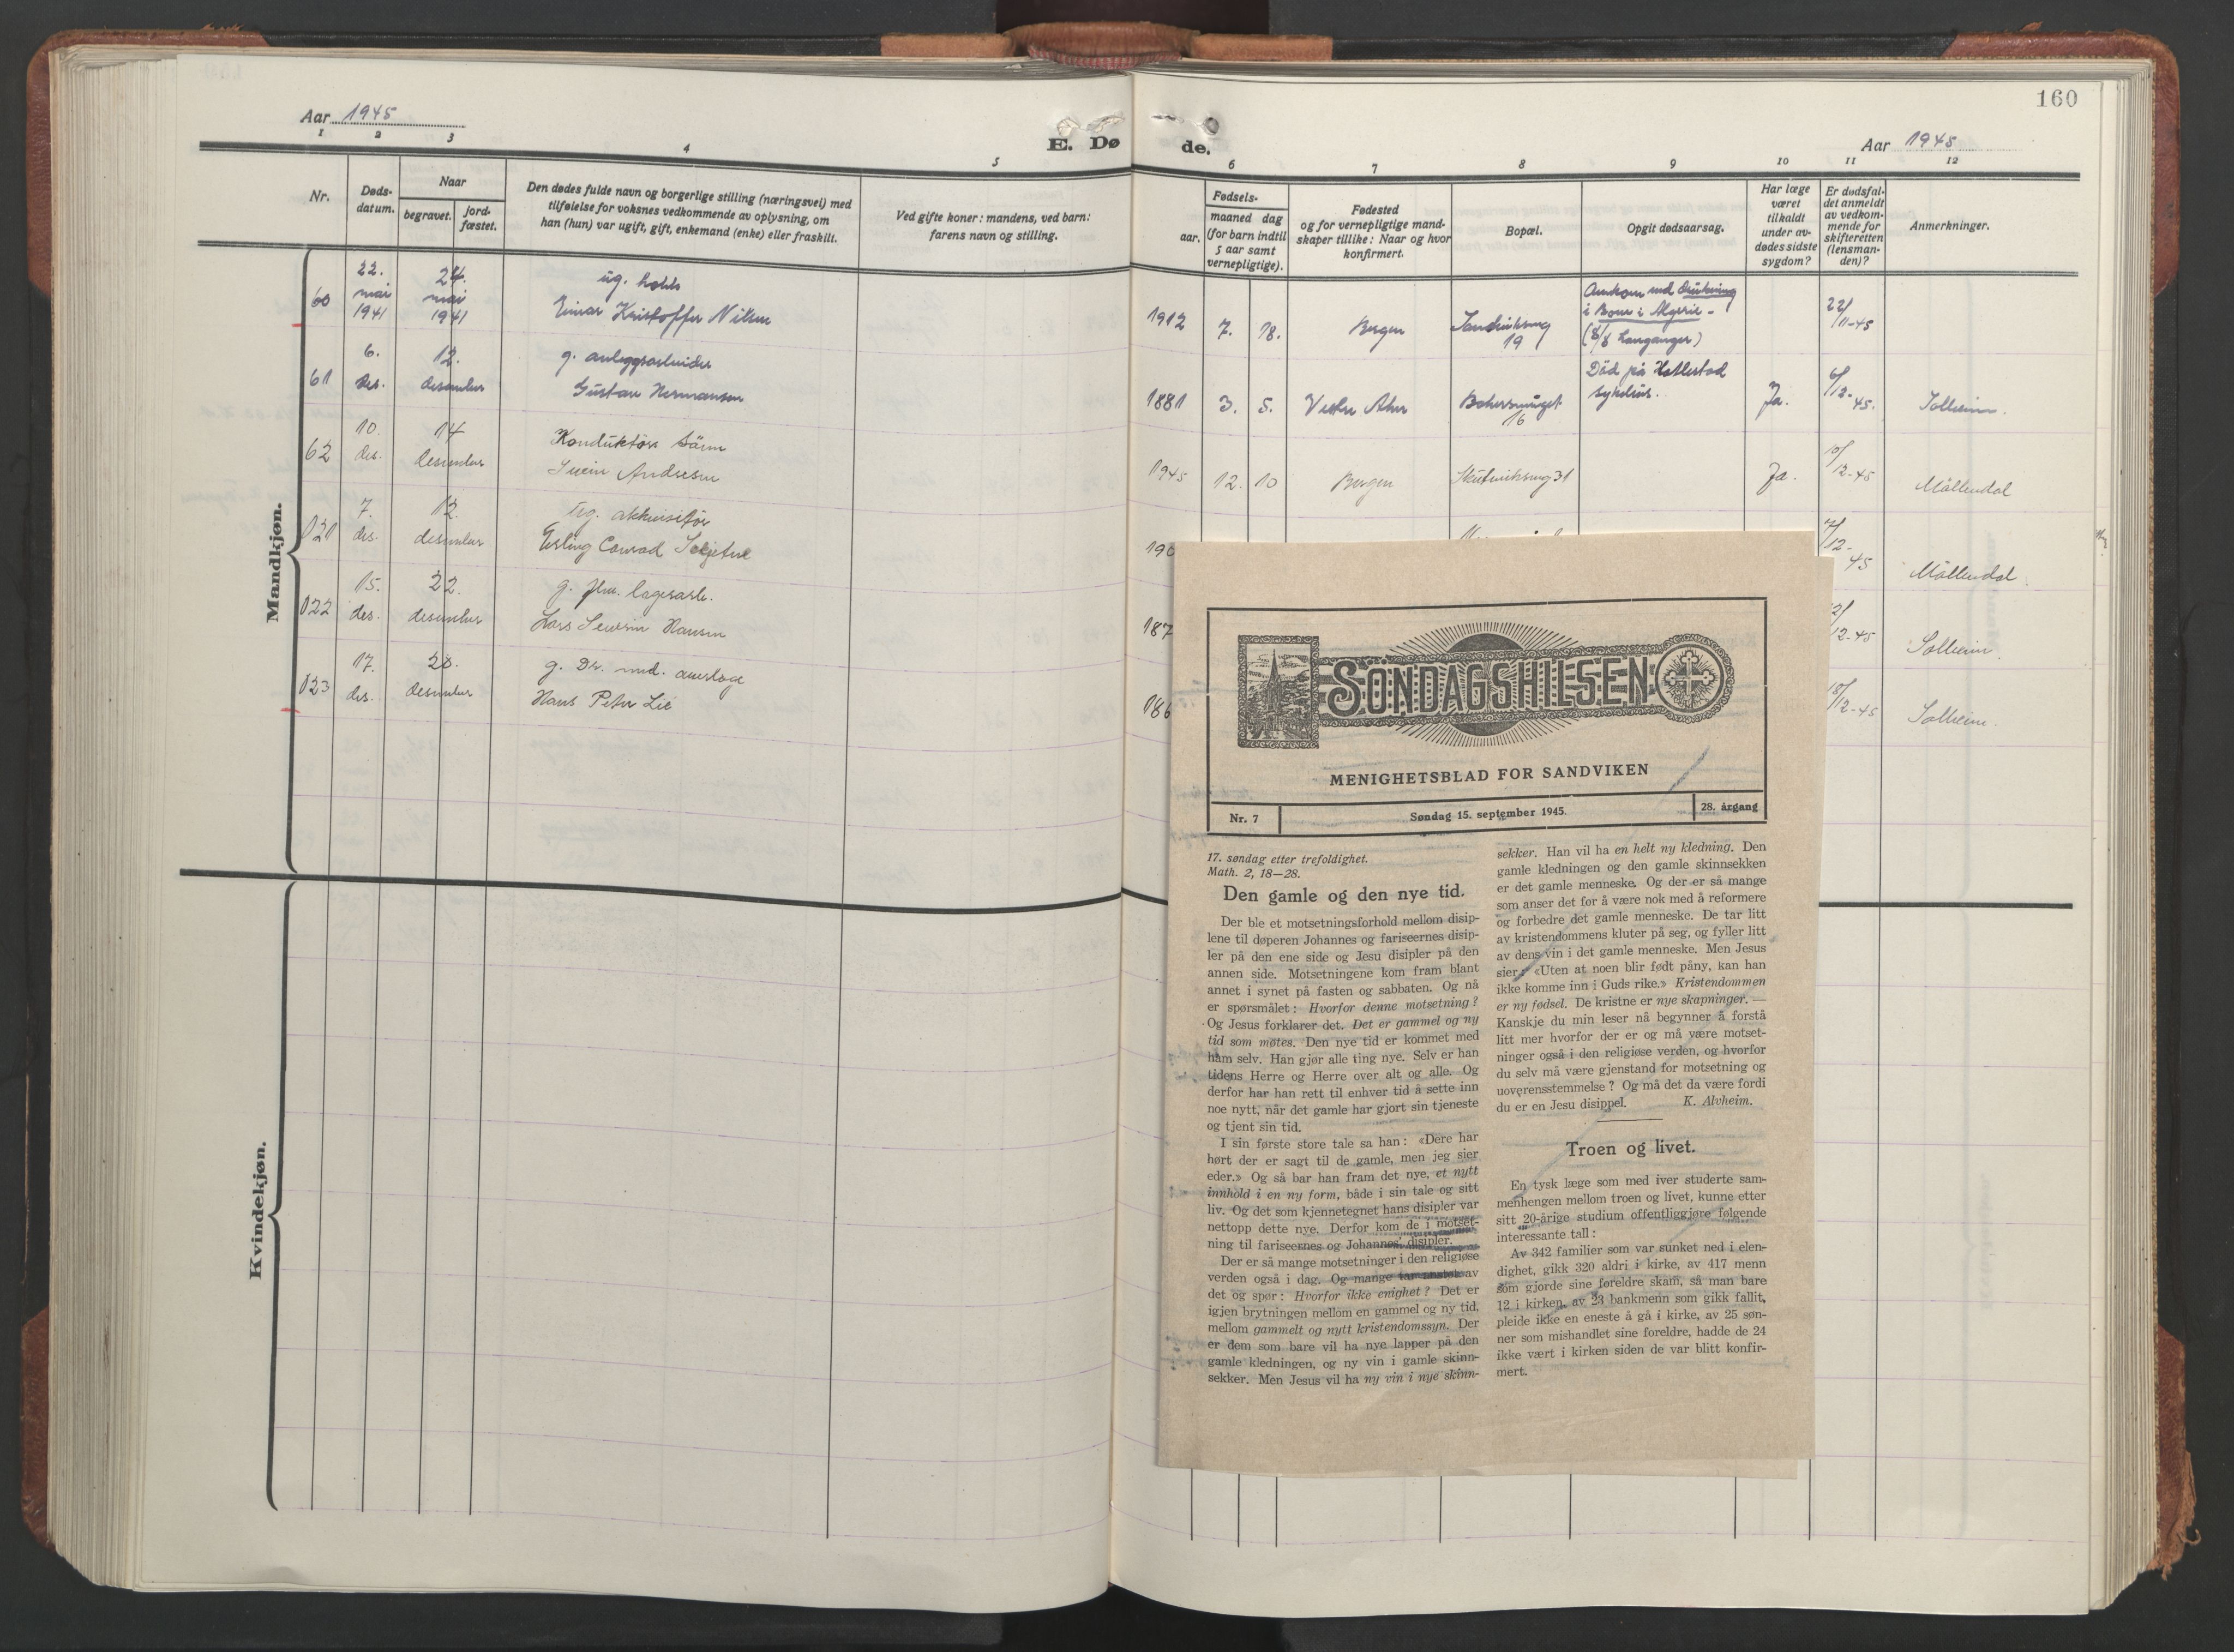 160
Aar 1945
E. Dø
de.
Aar 1945
1 2 3 4 5 6 7 8 9 10 11 12
Nr.
Døds-
datum.
Naar
begravet.
jord-
fæstet.
Den dødes fulde navn og borgerlige stilling (næringsvei) med
tilføielse for voksnes vedkommende av oplysning, om
han (hun) var ugift, gift, enkemand (enke) eller fraskilt.
Ved gifte koner: mandens, ved barn:
farens navn og stilling.
Fødsels-
aar.
maaned dag
(for barn indtil
5 aar samt
vernepligtige).
Fødested
og for vernepligtige mand-
skaper tillike: Naar og hvor
konfirmert.
Bopæl.
Opgit dødsaarsag.
Har læge
været
tilkaldt
under av-
dødes sidste
sygdom?
Er dødsfal-
det anmeldt
av vedkom-
mende for
skifteretten
(lensman-
den)?
Anmerkninger.
Mandkjøn.
60
22.
mai
1941
24.
mai
1941
ug.
Einar Kristoffer Nilsen
1912 7. 18. Bergen
Sandviksveg
19
Omkom ved drukning
i Bone i Algerie -
(8/8 Langanger)
22/
11-45
61
6.
des.
12.
desember
g. anleggsarbeider
Gustav Hermansen
1881 3. 5. Vestre Aker
16
Död på
sykehus.
Ja.
6/
12-45.
Solheim.
62
10.
des.
14
desember
Konduktör sönn
Svein Andresen
1945 12. 10 Bergen
Skuteviksveg 31
Ja.
10/
12-45
Möllendal
121
7.
des.
12.
desember
ug. akkvisitör
Erling Conrad
190
7/
12-
45
Möllendal.
122
15.
des.
22.
desember
g. fhv. lagerarb.
Lars Severin Hansen
187
12-45
Solheim.
123
17.
des.
desember
g. Dr. med. overlæge
Hans Peter Lie
186
18/
12-45
Solheim.
Kvindekjøn.
SØNDAGSHILSEN
MENIGHETSBLAD FOR SANDVIKEN
Nr. 7
Søndag 15. september 1945.
28. årgang
17. søndag etter trefoldighet.
Math. 2, 18—28.
Den gamle og den nye tid.
Der ble et motsetningsforhold mellom disip-
lene til døperen Johannes og fariseernes disip-
ler på den ene side og Jesu disipler på den
annen side. Motsetningene kom fram blant
annet i synet på fasten og sabbaten. Og nå
er spørsmålet: Hvorfor denne motsetning?
Og Jesus forklarer det. Det er gammel og ny
tid som møtes. Den nye tid er kommet med
ham selv. Han gjør alle ting nye. Selv er han
tidens Herre og Herre over alt og alle. Og
derfor har han rett til enhver tid å sette inn
noe nytt, når det gamle har gjort sin tjeneste
og tjent sin tid.
I sin første store tale sa han: «Dere har
hørt der er sagt til de gamle, men jeg sier
eder.» Og så bar han fram det nye, et nytt
innhold i en ny form, både i sin tale og sitt
liv. Og det som kjennetegnet hans disipler var
nettopp dette nye. Derfor kom de i motset-
ning til fariseernes og Johannes' disipler.
Der er så mange motsetninger i den religiøse
verden også i dag. Og mange tar anstøt av
det og spør: Hvorfor ikke enighet? Det er
igjen brytningen mellom en gammel og ny tid,
mellom gammelt og nytt kristendomssyn. Der
er dem som bare vil ha nye lapper på den
gamle kledningen, og ny vin i gamle skinn-
sekker. Men Jesus vil ha ny vin i nye skinn-
sekker. Han vil ha en helt ny kledning. Den
gamle kledningen og den gamle skinnsekken
er det gamle menneske. Og der er så mange
som anser det for å være nok med å reformere
og forbedre det gamle menneske. De tar litt
av kristendommens kluter på seg, og fyller litt
av dens vin i det gamle menneske. Men Jesus
sier: «Uten at noen blir født påny, kan han
ikke komme inn i Guds rike.» Kristendommen
er ny fødsel. De kristne er nye skapninger. —
Kanskje du min leser nå begynner å forstå
litt mer hvorfor der er og må være motset-
ninger også i den religiøse verden, og hvorfor
du selv må være gjenstand for motsetning og
uoverensstemmelse? Og må det da være fordi
du er en Jesu disippel. K. Alvheim.
Troen og livet.
En tysk læge som med iver studerte sam-
menhengen mellom troen og livet, kunne etter
sitt 20-årige studium offentliggjøre følgende
interessante tall:
Av 342 familier som var sunket ned i elen-
dighet, gikk 320 aldri i kirke, av 417 menn
som gjorde sine foreldre skam, så man bare
12 i kirken, av 23 bankmenn som gikk fallit,
pleide ikke en eneste å gå i kirke, av 25 søn-
ner som mishandlet sine foreldre, hadde de 24
ikke vært i kirken siden de var blitt konfir-
mert.